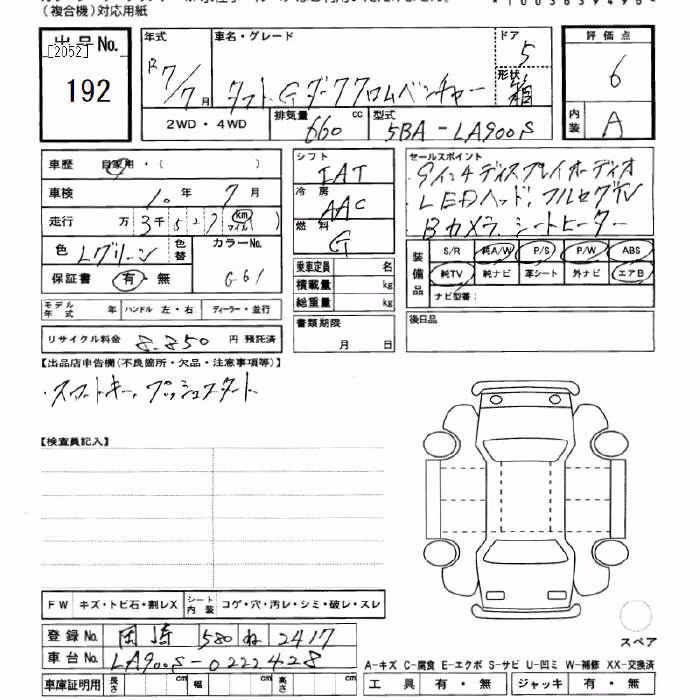 （複合機）対応用紙
出品No.
[2052]
192
年式
R 7/7 月
車名・グレード
タフト Gダーククロムベンチャー
ドア 5
形状 箱
評価点
6
内装 A
2WD・4WD
排気量 660 cc
型式 5BA-LA900S
車歴 自家用・（ ）
車検 10年 7月
走行 万 3千527 km マイル ( )
色 Lグリーン 色替 カラーNo. G61
保証書 有・無
モデル年式 年 ハンドル 左・右 ディーラー・並行
リサイクル料金 8,850 円 預託済
シフト IAT
冷房 AAC
燃料 G
乗車定員 名
積載量 kg
総重量 kg
書類期限
月 日
セールスポイント
・9インチディスプレイオーディオ
・LEDヘッド、フルセグTV
・Bカメラ、シートヒーター
装備品
S/R 純A/W P/S P/W ABS
純TV 純ナビ 革シート 外ナビ エアB
ナビ型番：
後日品
【出品店申告欄（不良箇所・欠品・注意事項等）】
・スマートキー、プッシュスタート
【検査員記入】
FW キズ・トビ石・割レX シート内装 コゲ・穴・汚レ・シミ・破レ・スレ
登録No. 岡崎 580 ね 2417
車台No. LA900S-0222428
車庫証明用 長さ cm 幅 cm 高さ cm
スペア
A-キズ C-腐食 E-エクボ S-サビ U-凹ミ W-補修 XX-交換済
工具 有・無 ジャッキ 有・無